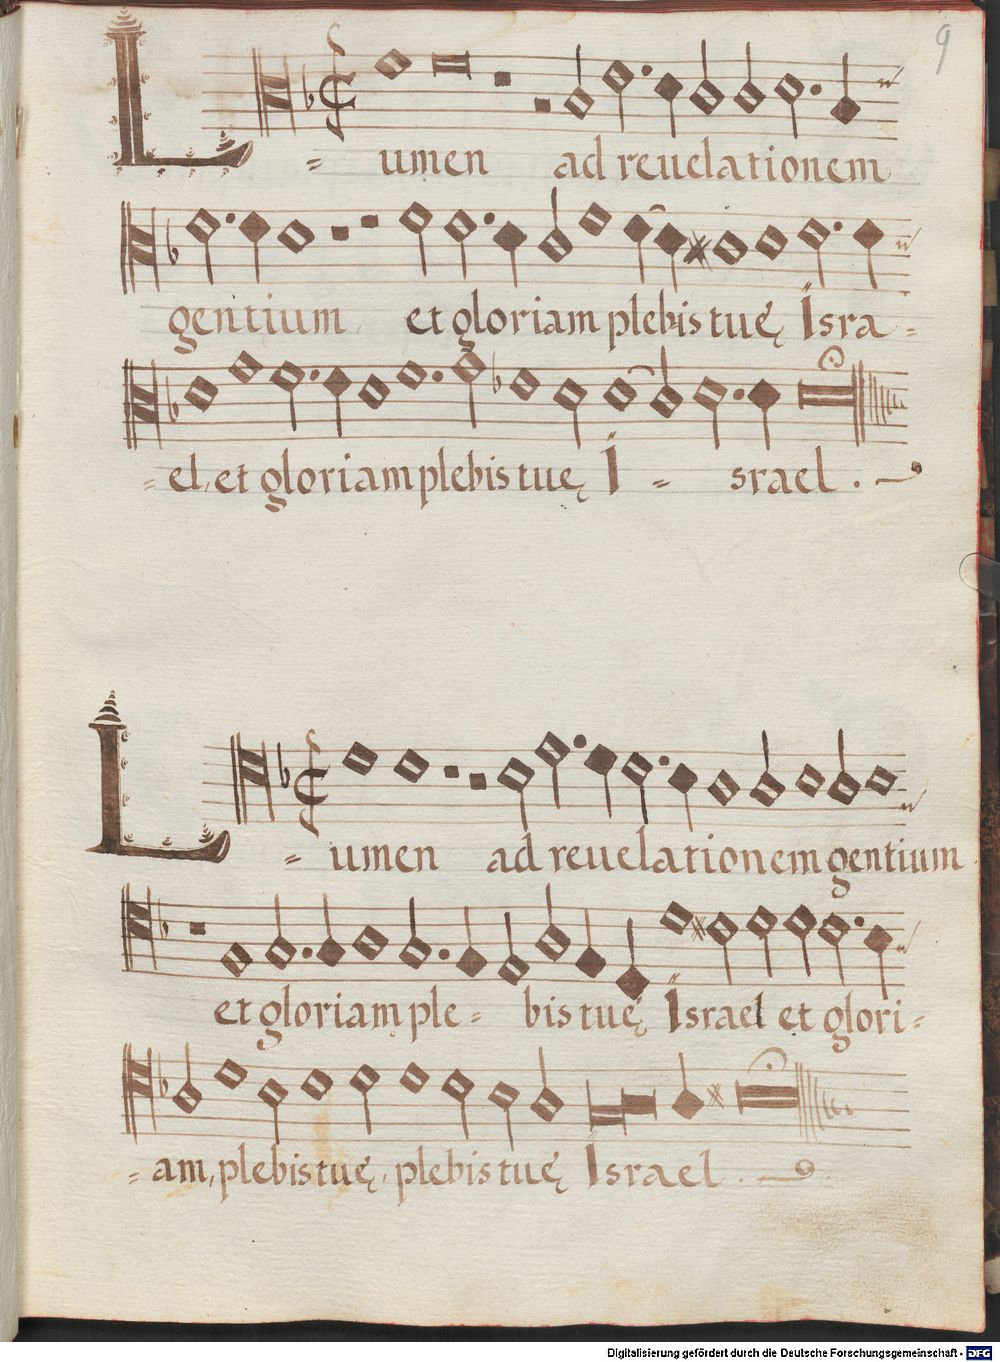 9
L = umen ad reuelationem
gentium et gloriam plebis tuę Isra =
= el, et gloriam plebis tuę I = srael.
L = umen ad reuelationem gentium
et gloriam ple = bis tuę Israel et glori =
= am, plebis tuę, plebis tuę Israel.
Digitalisierung gefördert durch die Deutsche Forschungsgemeinschaft - DFG